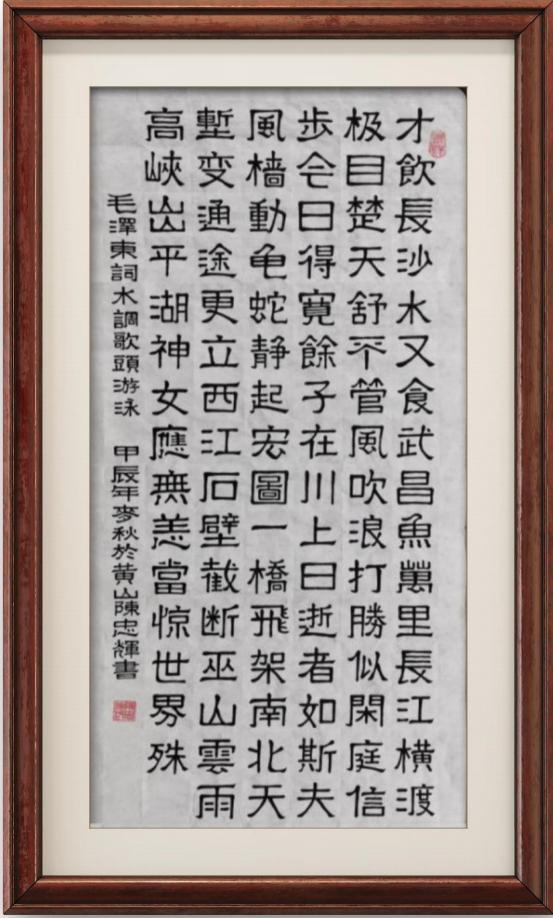 才飲長沙水又食武昌魚萬里長江橫渡
极目楚天舒不管風吹浪打勝似閑庭信
步今日得寬餘子在川上曰逝者如斯夫
風檣動龟蛇静起宏圖一橋飛架南北天
塹变通途更立西江石壁截断巫山雲雨
高峽出平湖神女應無恙當惊世界殊
毛澤東詞水調歌頭游泳 甲辰年麥秋於黄山陳忠輝書